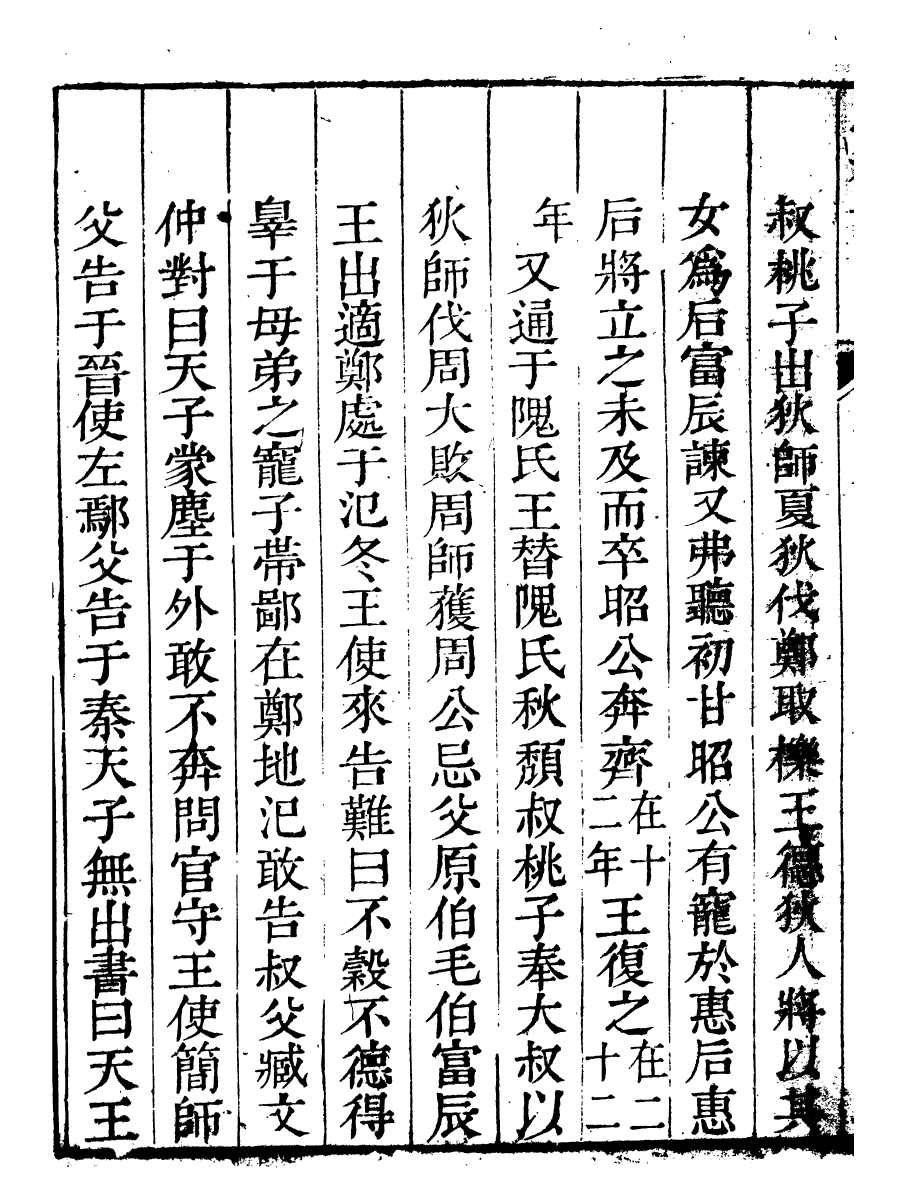 叔桃子出狄師夏狄伐鄭取櫟王德狄人將以其
女為后富辰諫又弗聽初甘昭公有寵於惠后惠
后將立之未及而卒昭公奔齊在十二年王復之在二十二
年又通于隗氏王替隗氏秋頹叔桃子奉大叔以
狄師伐周大敗周師獲周公忌父原伯毛伯富辰
王出適鄭處于氾冬王使來告難曰不穀不德得
辠于母弟之寵子帶鄙在鄭地氾敢告叔父臧文
仲對曰天子蒙塵于外敢不奔問官守王使簡師
父告于晉使左鄢父告于秦天子無出書曰天王